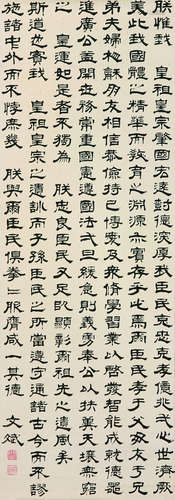 朕惟我 皇祖皇宗肇國宏遠尌德深厚我臣民克忠克孝億兆弌心世濟厥
美此我國體之精華而教育之淵源亦實存乎此焉爾臣民孝于父母友于兄
弟夫婦相龢朋友相信恭儉持己博愛及衆修學習業以啓發智能成就德器
進廣公益開世務常重國憲遵國法弌旦緩急則義勇奉公以扶翼天壤無窮
之 皇運如是者不獨為 朕忠良臣民又足以顯彰爾祖先之遺風矣
斯道也實我 皇祖皇宗之遺訓而子孫臣民之所當遵守通諸古今而不謬
施諸中外而不悖庶幾 朕與爾臣民俱拳〻服膺咸一其德 文斌